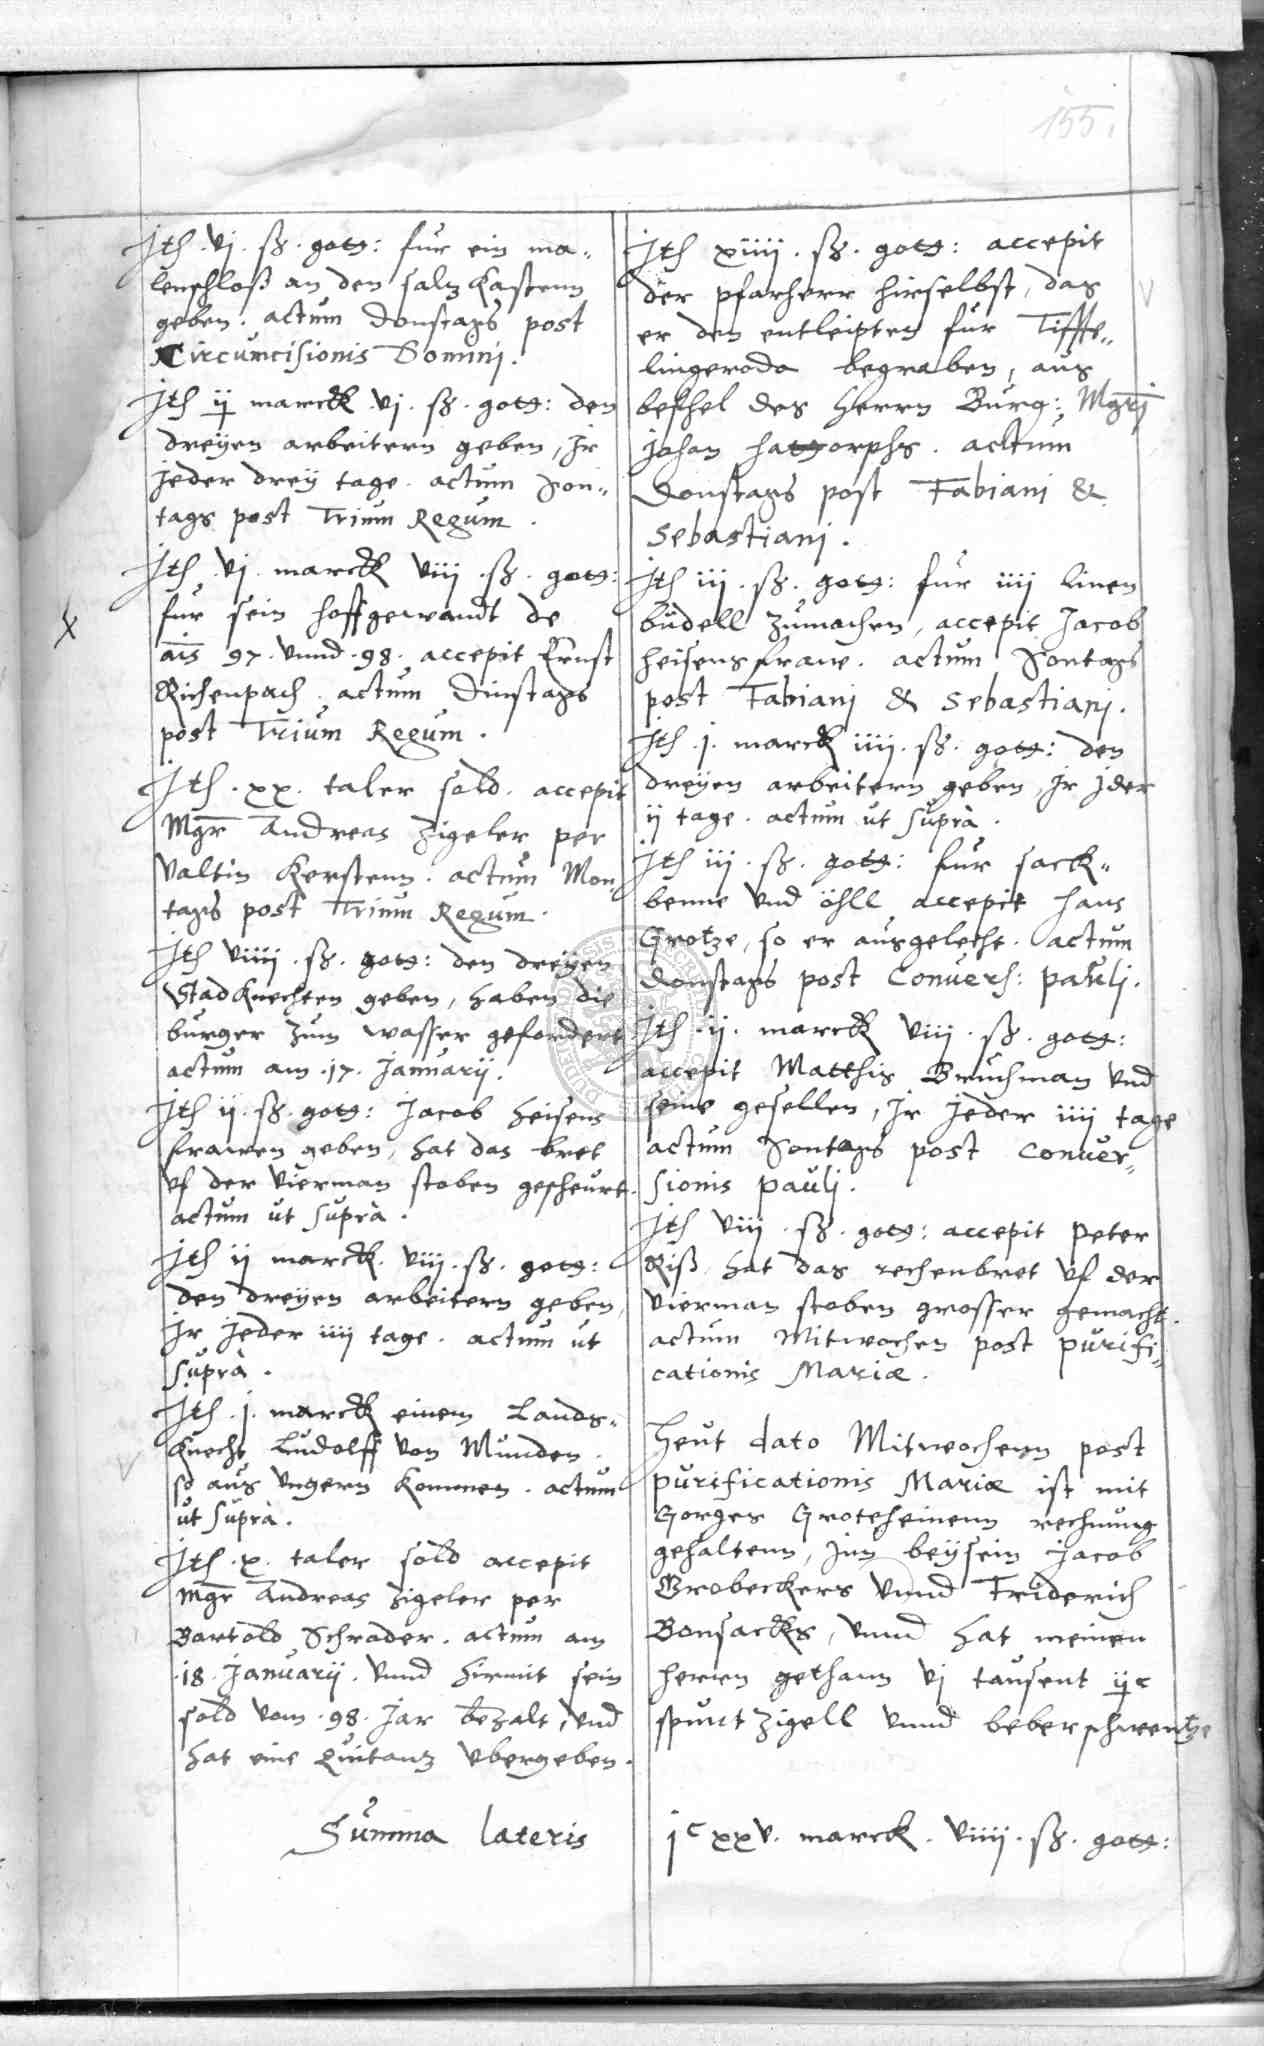 155.
Jtß .vj. sß. gotg: fur ein ma„
lenschloß an den saltz kastenn
geben. actum Donstags post
Circumcisionis Domini.
Jtß ij marckk .vj. sß. gotg: den
dreÿen arbeitern geben, Jr
Jeder dreÿ tage. actum Son„
tags post Trium Regum.
Jtß .vj. marckk viij .sß. gotg:
fur sein hoffgewandt de
ais 97. vnnd .98. accepit Ernst
Richenpach. actum Dinstags
post Trium Regum.
Jtß .xx. taler sold. accepit
Mgr Andreas Zigeler per
Valtin Kerstenn. actum Mon„
tags post Trium Regum.
Jtß viiij .sß. gotg: den dreÿen
Stadknechten geben, haben die
burger zum wasser gefordert
actum am .17. Januarij.
Jtß ij. sß. gotg: Jacob heisens
frawen geben, hat das bret
vf der vierman stoben gescheurt.
actum ut suprà.
Jtß ij marckk. viij. sß. gotg:
den dreÿen arbeitern geben,
Jr jeder iiij tage. actum ut
suprà.
Jtß .j. marckk einem Lands„
knecht Ludolff von Munden
so aus vngern kommen. actum
ut suprà.
Jtß .x. taler sold accepit
Mgr Andreas Zigeler per
Bartold Schrader. actum am
.18. Januarij. vnnd hirmit sein
sold vom .98. Jar bezalt, vnd
hat eine Quitantz vbergeben.
Summa lateris
Jtß xiiij. sß. gotg: accepit
der pfarherr hirselbst, das
er den entleipten fur Tiffte„
lingeroda begraben, aus
befehel des Herrn Burg: Mgrj
Johan hattorphs. actum
Donstags post Fabiani &
Sebastiani.
Jtß iij. sß. gotg: fur iiij linen
büdell zumachen, accepit Jacob
heisens frawe. actum Sontags
post Fabiani & Sebastiani.
Jtß .j. marck iiij. sß. gotg: den
dreÿen arbeitern geben, Jr jder
ij tage. actum ut suprà.
Jtß iij. sß. gotg: fur sack„
benne vnd öhll accepit hans
Grotze, so er ausgelecht. actum
Donstags post Conuers: pauli.
Jtß .ij. marckk viij. sß. gotg:
accepit Matthis Bruchman vnd
seine gesellen, Jr jeder iiij tage
actum Sontags post Conuer„
sionis pauli.
Jtß viij. sß. gotg: accepit Peter
Riß hat das rechenbret vf der
vierman stoben grosser gemacht.
actum Mitwochen post purifi„
cationis Mariæ.
Heut dato Mitwochenn post
purificationis Mariæ ist mit
Gorges Groteheinenn rechnung
gehaltenn, Jnn beÿsein Jacob
Grobeckers vnnd Friderich
Bonsackks, vnnd hat meinen
herren gethann vj tausent ijc
spunt Zigell vnnd beberschwentze
jc xxv. marck. viiij. sß. gotg: